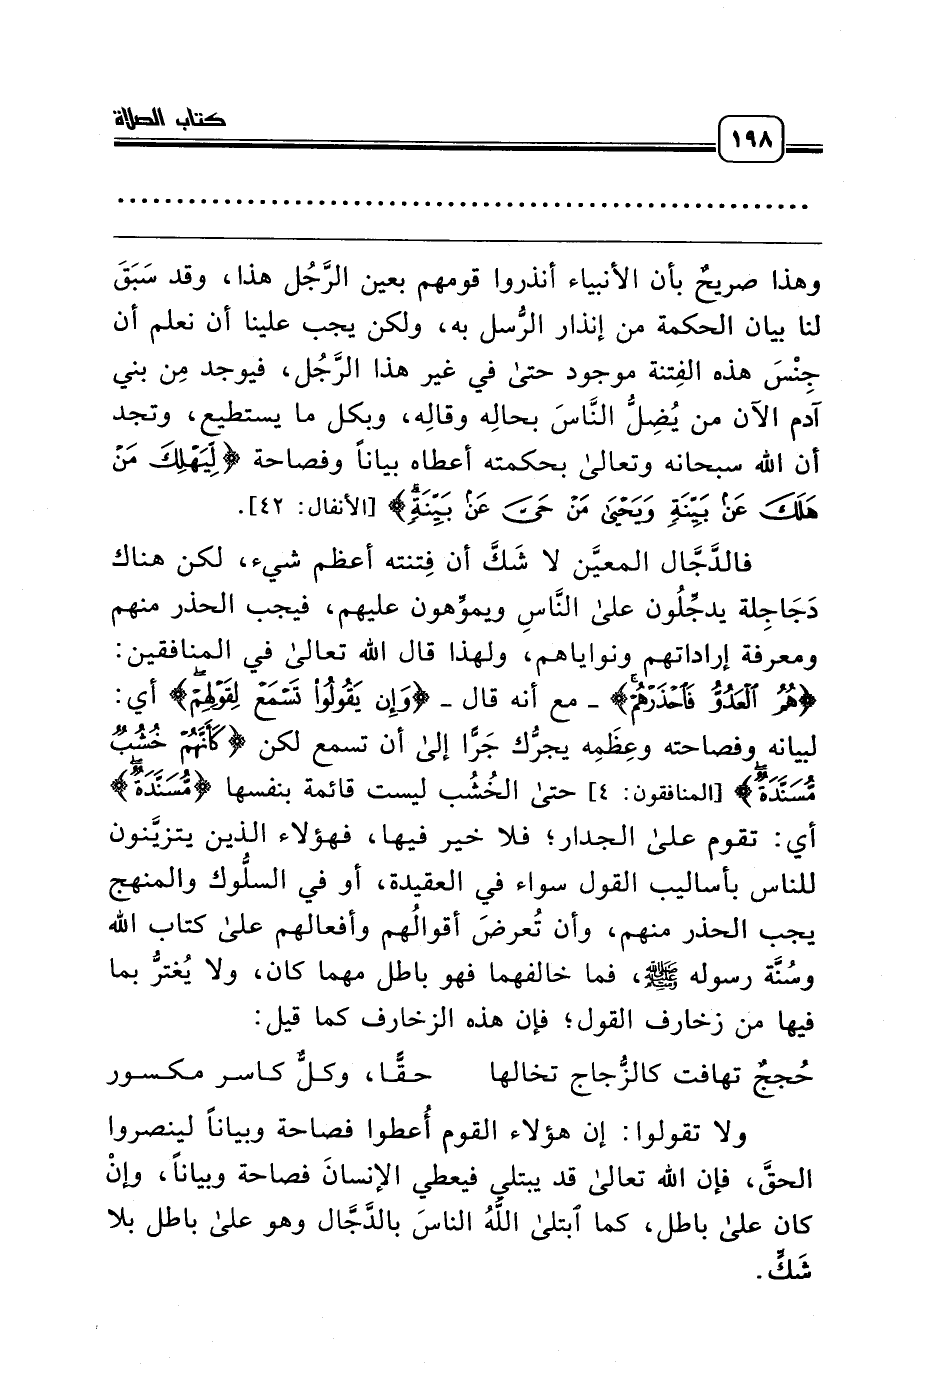 كتاب الصلاة
١٩٨
وهذا صريحٌ بأن الأنبياء أنذروا قومهم بعين الرَّجُل هذا، وقد سَبَقَ
لنا بيان الحكمة من إنذار الرُّسل به، ولكن يجب علينا أن نعلم أن
جِنْسَ هذه الفِتنة موجود حتىٰ في غير هذا الرَّجُل، فيوجد مِن بني
آدم الآن من يُضِلُّ النَّاسَ بحالِه وقالِه، وبكل ما يستطيع، وتجد
أن الله سبحانه وتعالىٰ بحكمته أعطاه بياناً وفصاحة ﴿لِّيَهْلِكَ مَنْ
هَلَكَ عَنۢ بَيِّنَةٍ وَيَحْيَىٰ مَنْ حَيَّ عَنۢ بَيِّنَةٍۗ﴾ [الأنفال: ٤٢].
فالدَّجَّال المعيَّن لا شَكَّ أن فِتنته أعظم شيء، لكن هناك
دَجَاجِلة يدجِّلُون علىٰ النَّاسِ ويموِّهون عليهم، فيجب الحذر منهم
ومعرفة إراداتهم ونواياهم، ولهذا قال الله تعالىٰ في المنافقين:
﴿هُمُ ٱلْعَدُوُّ فَٱحْذَرْهُمْۚ﴾ ـ مع أنه قال ـ ﴿وَإِن يَقُولُوا۟ تَسْمَعْ لِقَوْلِهِمْۖ﴾ أي:
لبيانه وفصاحته وعِظَمِه يجرُّك جَرًّا إلىٰ أن تسمع لكن ﴿كَأَنَّهُمْ خُشُبٌ
مُّسَنَّدَةٌۖ﴾ [المنافقون: ٤] حتىٰ الخُشُب ليست قائمة بنفسها ﴿مُّسَنَّدَةٌۖ﴾
أي: تقوم علىٰ الجدار؛ فلا خير فيها، فهؤلاء الذين يتزيَّنون
للناس بأساليب القول سواء في العقيدة، أو في السلُّوك والمنهج
يجب الحذر منهم، وأن تُعرضَ أقوالُهم وأفعالهم علىٰ كتاب الله
وسُنَّة رسوله ﷺ، فما خالفهما فهو باطل مهما كان، ولا يُغترُّ بما
فيها من زخارف القول؛ فإن هذه الزخارف كما قيل:
حُججٌ تهافت كالزُّجاج تخالها حقًّا، وكلٌّ كاسر مكسور
ولا تقولوا: إن هؤلاء القوم أُعطوا فصاحة وبياناً لينصروا
الحقَّ، فإن الله تعالىٰ قد يبتلي فيعطي الإنسانَ فصاحة وبياناً، وإنْ
كان علىٰ باطل، كما ٱبتلىٰ اللَّهُ الناسَ بالدَّجَّال وهو علىٰ باطل بلا
شَكٍّ.